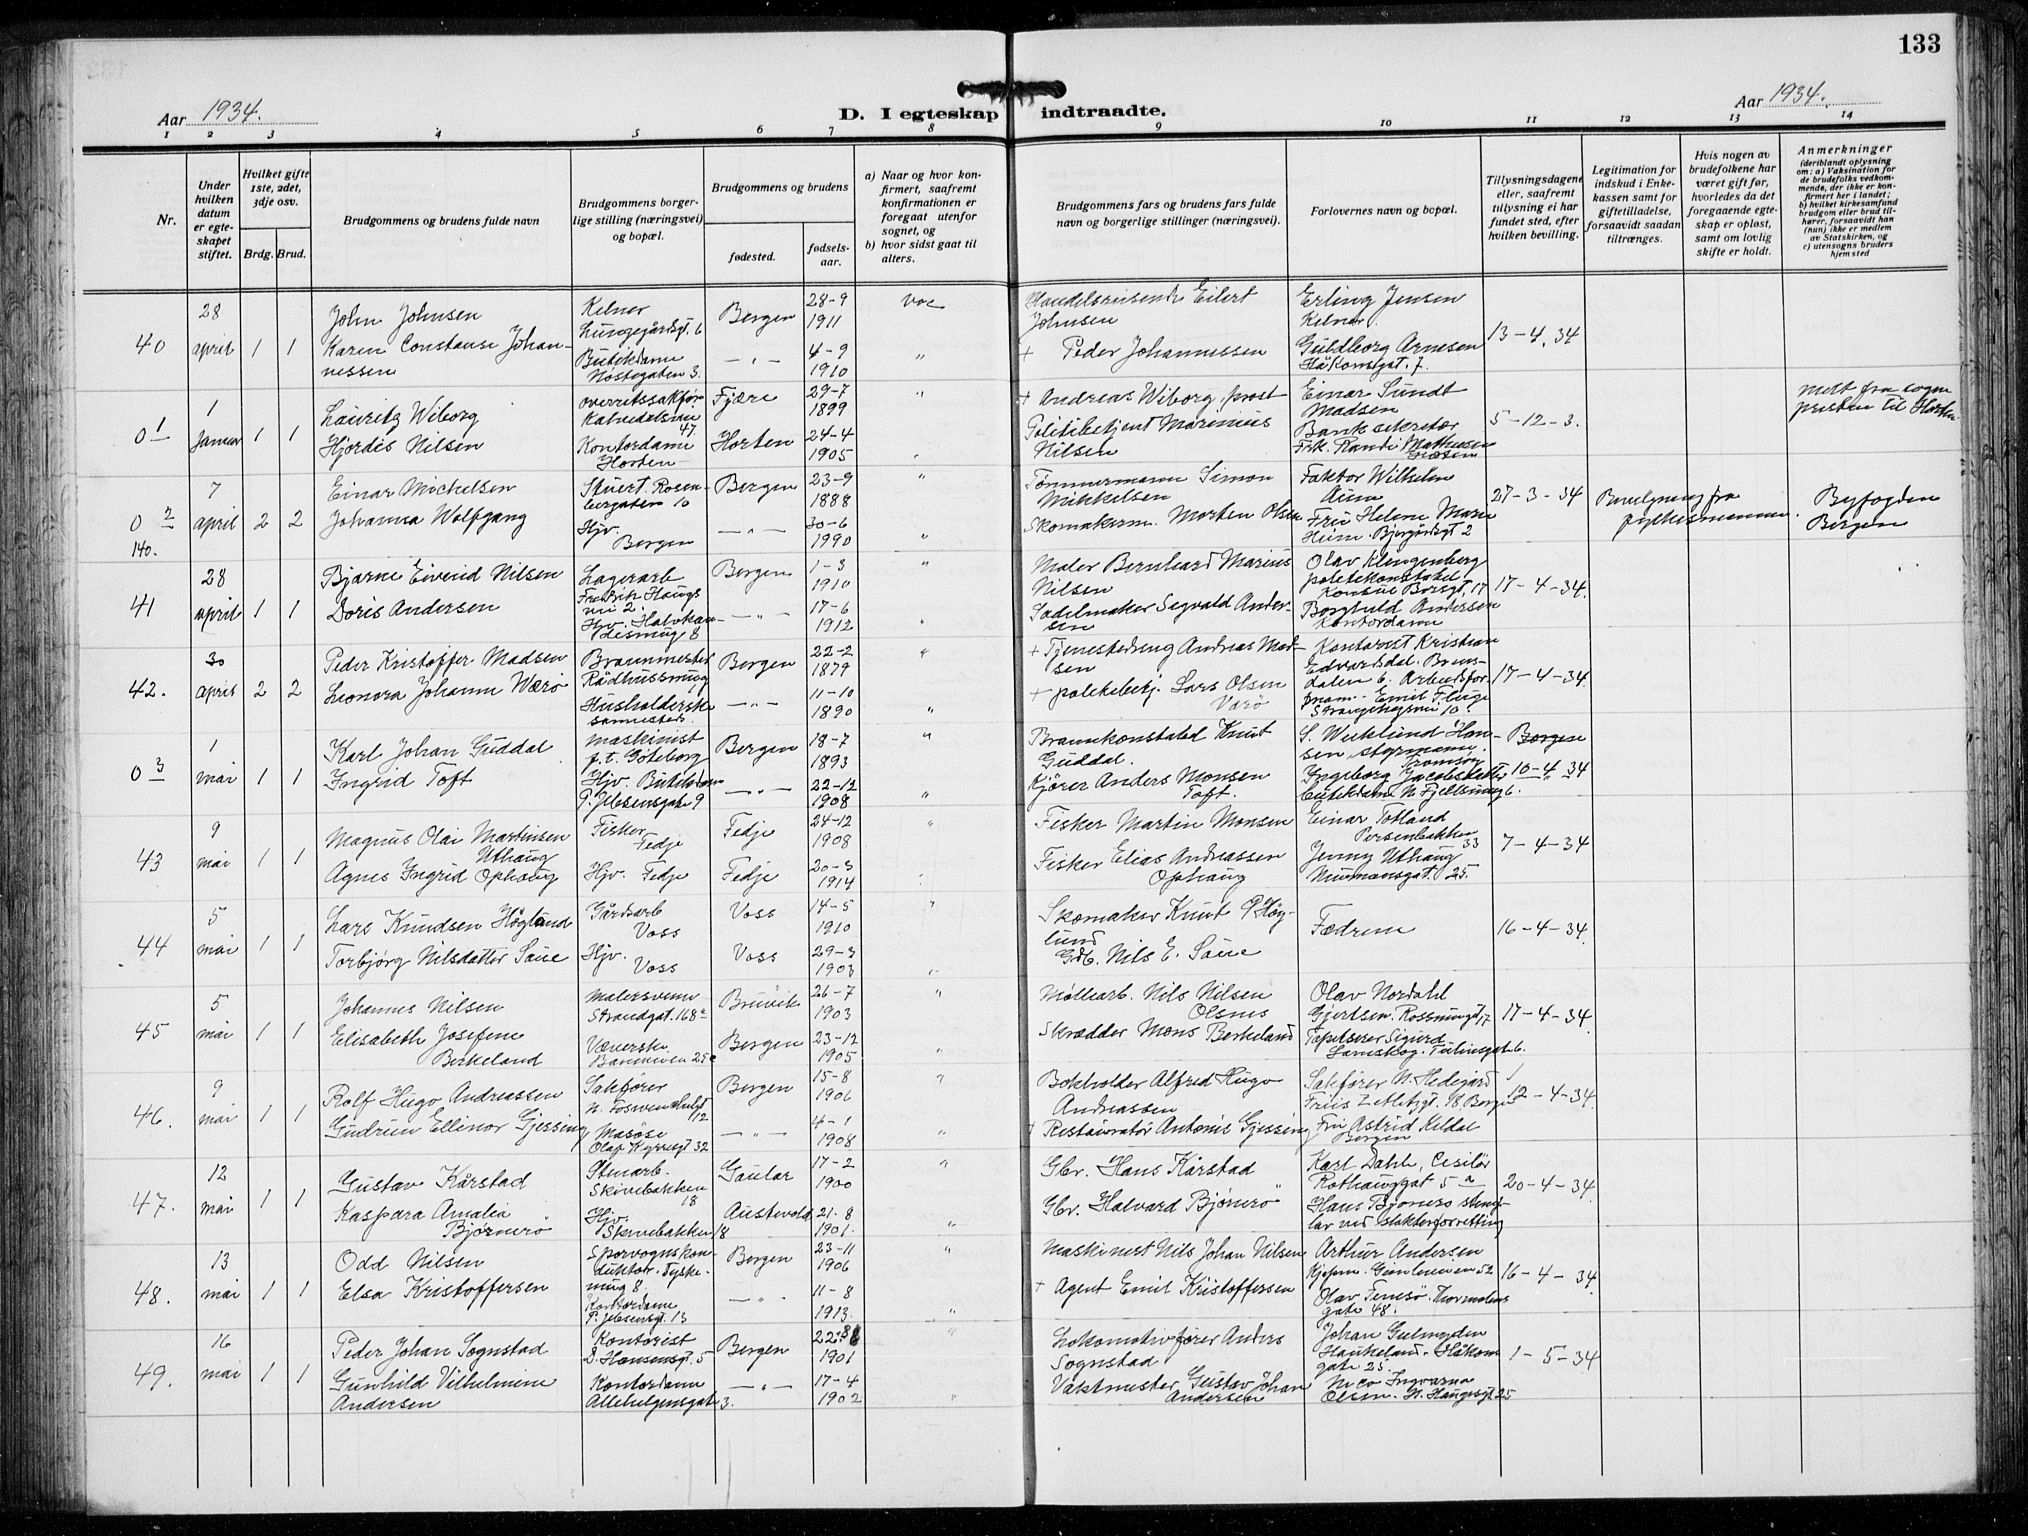 133
Aar 1934.
D. I egteskap indtraadte.
Aar 1934.
1 2 3 4 5 6 7 8 9 10 11 12 13 14
Nr.
Under hvilken datum er egteskapet stiftet.
Hvilket gifte 1ste, 2det, 3dje osv.
Brdg. Brud.
Brudgommens og brudens fulde navn
Brudgommens borgerlige stilling (næringsvei) og bopæl.
Brudgommens og brudens
fødested.
fødselsaar.
a) Naar og hvor konfirmert, saafremt konfirmationen er foregaat utenfor sognet, og
b) hvor sidst gaat til alters.
Brudgommens fars og brudens fars fulde navn og borgerlige stillinger (næringsvei).
Forlovernes navn og bopæl.
Tillysningsdagene eller, saafremt tillysning ei har fundet sted, efter hvilken bevilling.
Legitimation for indskud i Enkekassen samt for giftetilladelse, forsaavidt saadan tiltrænges.
Hvis nogen av brudefolkene har været gift før, hvorledes da det foregaaende egteskap er opløst, samt om lovlig skifte er holdt.
Anmerkninger
(deriblandt oplysning om: a) Vaksination for de brudefolks vedkommende, der ikke er konfirmert her i landet; b) hvilket kirkesamfund brudgom eller brud tilhører, forsaavidt han (hun) ikke er medlem av Statskirken, og c) utensogns bruders hjemsted
40 28 april 1 1
John Johnsen
Karen Constanse Johannessen
Kelner
Lungegårdsgt. 6
Butikdame
Nøstegaten 3.
Bergen
— " —
28-9 1911
4-9 1910
Handelsreisende Eilert Johnsen
+ Peder Johannessen
Erling Jensen
Kelner
Guldborg Arnesen
Håkonsgat. 7.
13-4.34
0 1 1 Januar 1 1
Lauritz Wiborg
Hjördis Nilsen
overretssakfør
Kalvedalsvei 47.
Kontordame
Horten
Fjære
Horten
29-7 1899
24-4 1905
+ Andreas Wiborg, prost
Politibetjent Marinius Nilsen
Einar Sundt Madsen
Banksekretær
Frk. Randi Mathiesen
5-12-3.
melt fra sogne
presten til Horten
0 2 7 april 2 2
140.
Einar Michelsen
Johanna Wolfgang
Stuert. Rosenbergaten 10
Hjv. Bergen
Bergen
— " —
23-9 1888
30-6 1990
Tömmermann Simon Mikkelsen
Skomakerm. Morten Olsen
Faktor Wilhelm Aum
Fru Helene Marie Heim. Bjergårdsgt 2
27-3-34
Bevilgning fra fylkesmannen.
Byfogden Bergen
41 28 april 1 1
Bjarne Eivend Nilsen
Doris Andersen
Lagerarb
Fredrik Haugs vei 2.
Bergen
— " —
1-3 1910
17-6 1912
Maler Bernhard Marius Nilsen
Sadelmaker Segvald Andersen
Olav Klingenberg
politikonstabel
Konsul Børsgt. 17
Borghild Andersen
Kontordame
17-4-34.
42. 30 april 2 2
Peder Kristoffer Madsen
Leonora Johanne Værö
Brannmester
Rådhussmug
Husholderske
sammesteds.
Bergen
— " —
22-2 1879
11-10 1890
+ Tjenestedreng Andreas Madsen
+ politibetj. Lars Olsen Værö
Kontorist Kristian Edvardsdal.
Arbeidsformann. Emil Fluge
Strangehagsvei 10.
17-4-34.
0 3 1 mai 1 1
Karl Johan Guddal
Ingrid Toft
maskinist
f. t. Göteborg
Hjv.
P. Jebsensgate 9
Bergen
— " —
18-7 1893
22-12 1908
Brannkonstabel Knut Guddal.
Kjörer Anders Monsen Toft.
Hansen styrmann.
Tromsö
Ingeborg Jacobsdatter
butikdame N. Fjellsmug 6.
Bergen
10-4-34
43 9 mai 1 1
Magnus Olai Martinsen Uthaug
Agnes Ingrid Ophaug
Fisker Fedje
Hjv. Fedje
Fedje
Fedje
24-12 1908
20-3 1914
Fisker Martin Monsen
Fisker Elias Andreassen Ophaug
Einar Totland
Persenbakken 33
Jenny Uthaug
Neumansgat. 25.
7-4-34
44 5 mai 1 1
Lars Knudsen Höglund
Torbjörg Nilsdatter Saue
Gårdsarb Voss
Hjv. Voss
Voss
Voss
14-5 1910
29-3 1903
Skomaker Knut P. Höglund
Gdb. Nils E. Saue
Fædrene
16-4-34.
45 5 mai 1 1
Johannes Nilsen
Elisabeth Josefine Birkeland
Malersvenn
Strandgat. 168a
Væverske
Bruvik
Bergen
26-7 1903
23-12 1905
Møllearb. Nils Nilsen Olsnes
Skrædder Mons Berkeland
Olav Nordahl Gjertsen.
Tapetserer Sigurd
17-4-34.
46. 9 mai 1 1
Rolf Hugo Andreassen
Gudrun Ellinor Gjessing
Sakfører
Masöse
Olaf Kyrresgt 32
Bergen
— " —
15-8 1906
4-1 1908
Bokholder Alfred Hugo Andreassen
+ Restauratör Antonie Gjessing
Sakfører N. Hedegård Friis
Zetlitzgt. 18 Bergen
Fru Astrid Kildal
Bergen
12-4-34.
47. 12 mai 1 1
Gustav Kårstad
Kaspara Amalia Bjørnerö
Stenarb.
Skivebakken 18
Hjv.
Skivebakken 18
Gaular
Austevold
17-2 1900
21-8 1901.
Gbr. Hans Kårstad
Gbr. Halvard Bjørnerö
Karl Dahle, Ciselör
Rothauggat 5 a
Hans Bjonerö
20-4-34.
48. 13 mai 1 1
Odd Nilsen
Elsa Kristoffersen
Sporvognskonduktör. Tyskemug 8.
Kontordame
P. Jebsensgt. 13
Bergen
— " —
23-11 1906
11-8 1913.
Maskinest Nils Johan Nilsen
+ Agent Emil Kristoffersen
Arthur Andersen
Gimleveien 52
Olav Temsö. Thormølens gate 48.
16-4-34.
49. 16 mai 1 1
Peder Johan Sognstad
Gunhild Vilhelmine Andersen
Kontorist
D. Hansensgt. 5
Kontordame
Allehelgensgate 3.
Bergen
— " —
1901
17-4 1902
Lokomotivfører Anders Sognstad
Vaktmester Gustav Johan Andersen
Johan Haukeland. Håkonsgate 25.
Olsen. H. Haugesgt 25
1-5-34